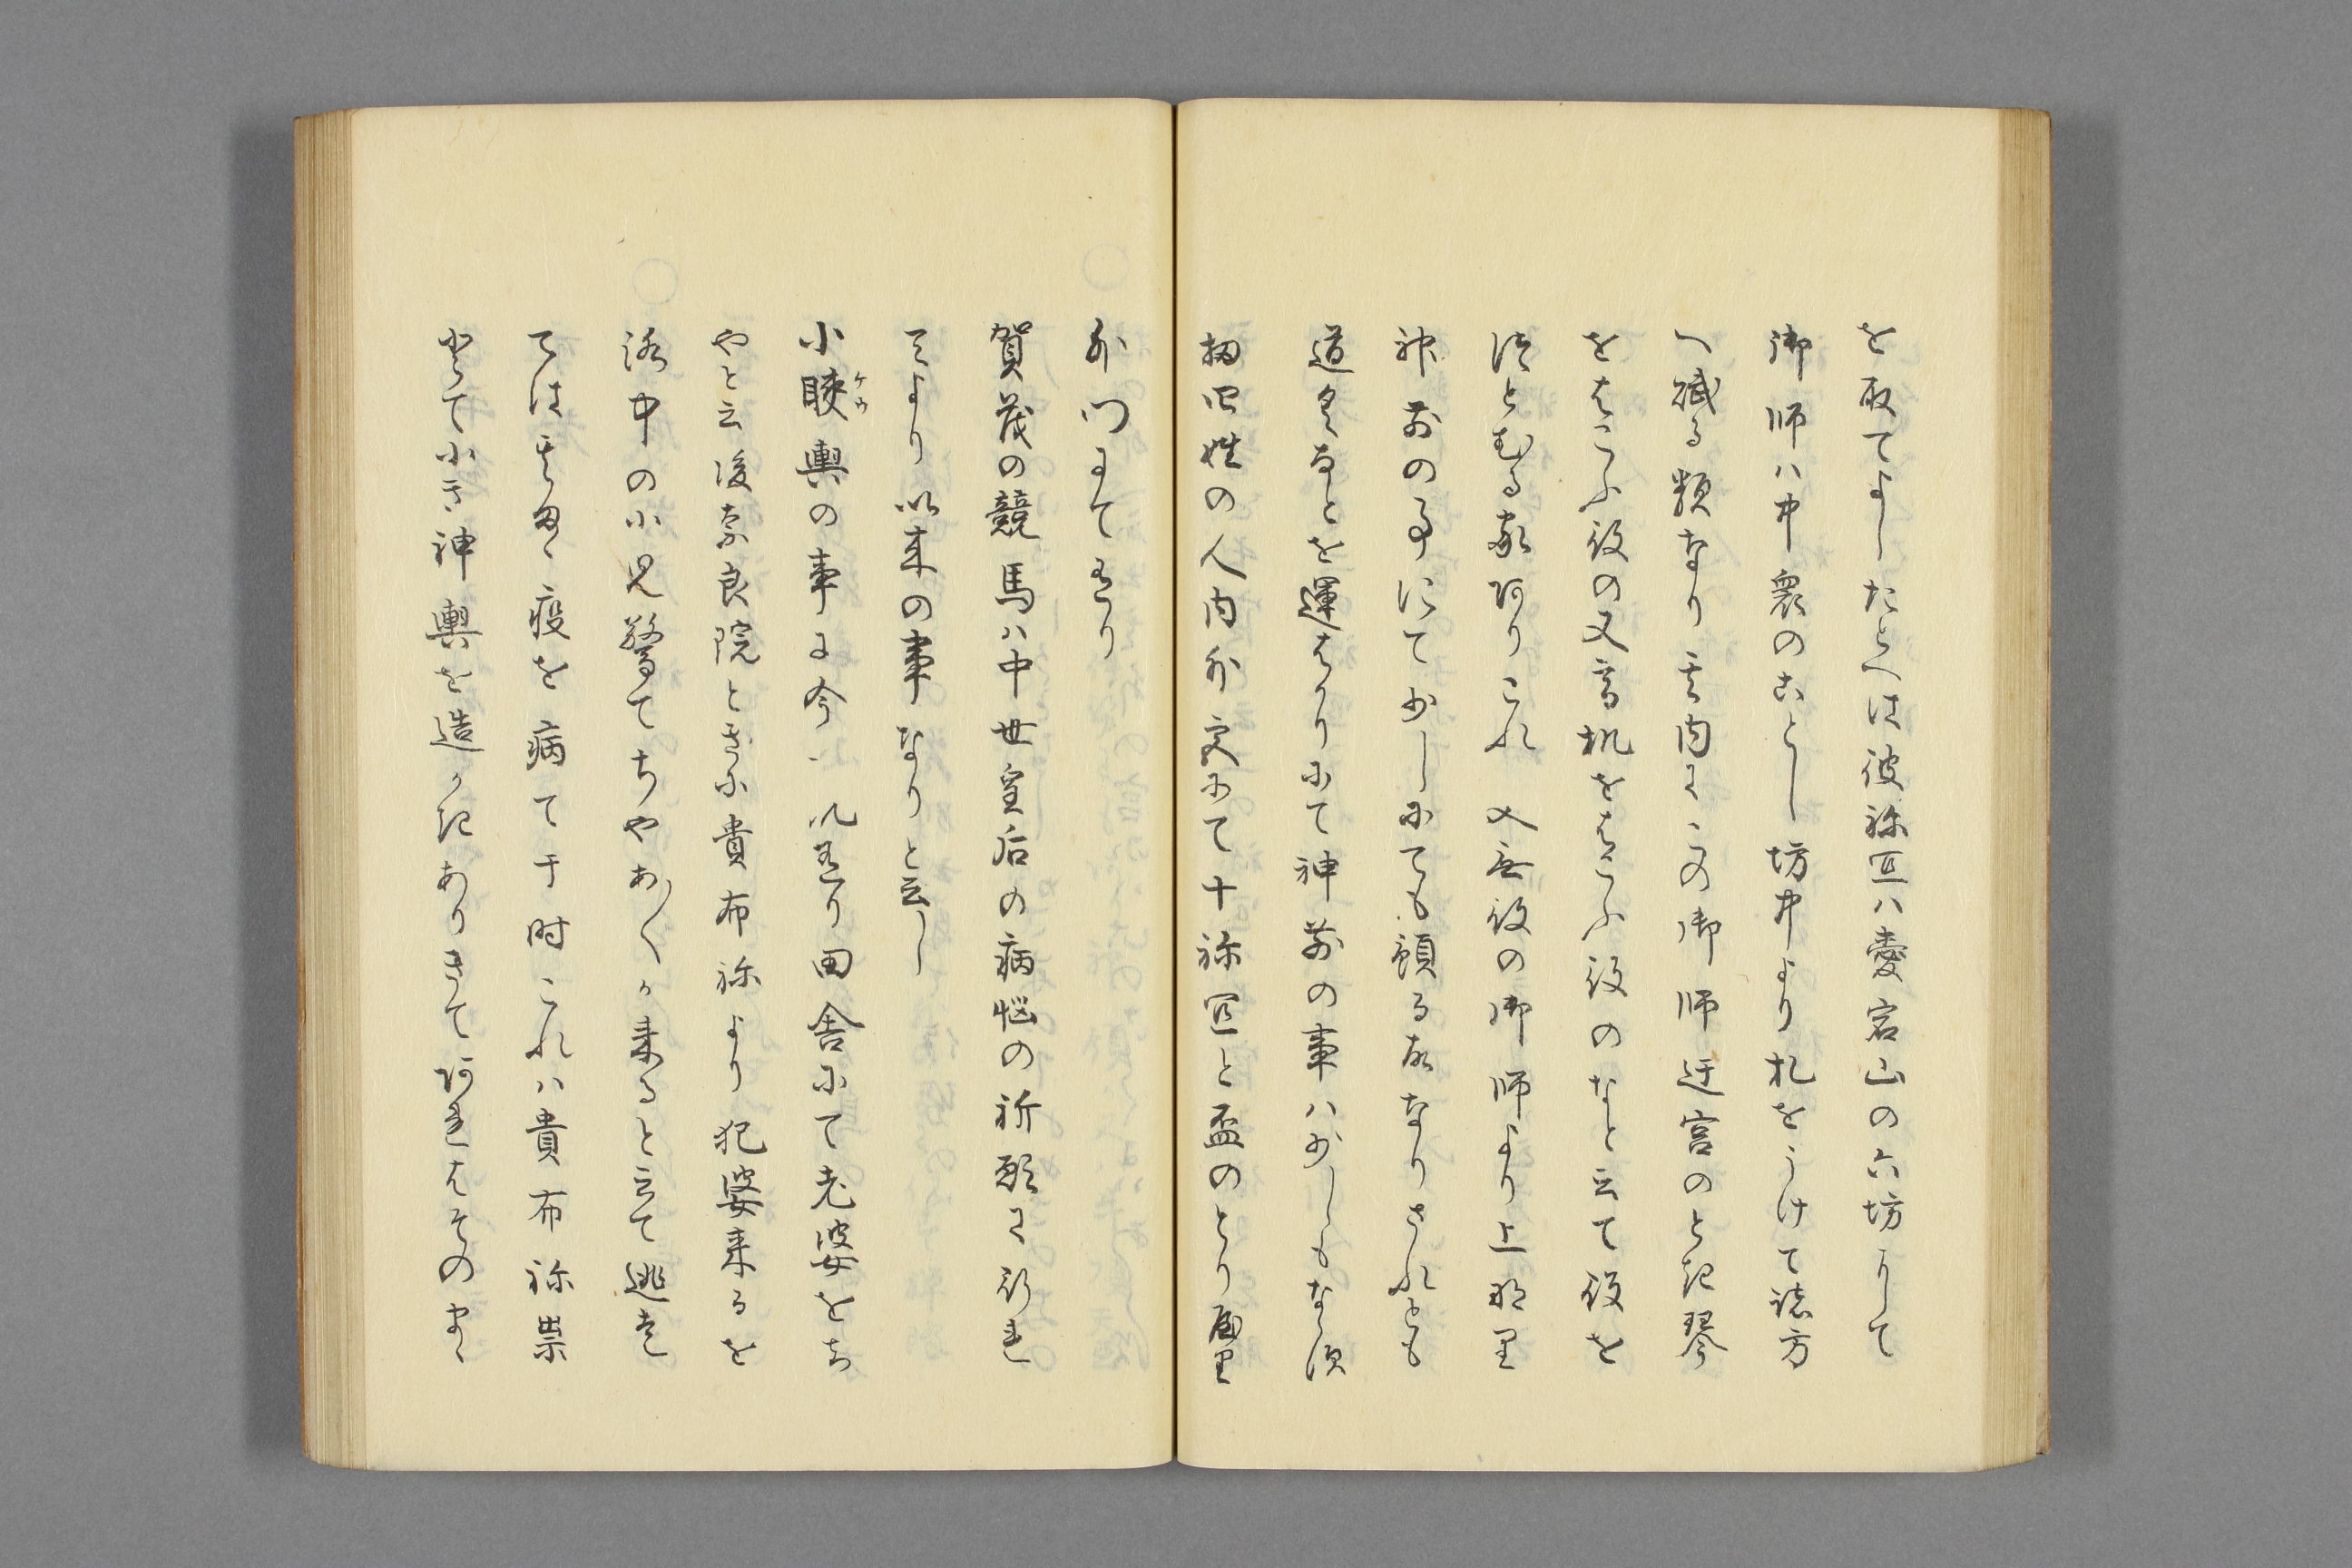 を取てよしたとへは彼祢宜ハ愛宕山の六坊にして
御師ハ中衆のことし坊中より札をうけて諸方
へ賦る類なり其内にこの御師迁宮のとき琴
をはこふ役の又高机をはこふ役のなと云て役を
つとむる家ありこれ又無役の御師より上那里
神前の事にて少しにても預る故なりされとも
道具なとを運はかりにて神前の事ハ少しもなす
扨四姓の人内外交にて十祢宜と盃のとり
外門まて有り
賀茂の競馬ハ中世皇后の病悩の祈願に祈れ
てより以来の事なりと云々
小𦝫輿の事に今ハ九有り田舎にて老婆をち
やと云後奈良院ときに貴布祢より犯婆来るを
洛中の小児驚てちやあ〱か来ると云て逃き
ては其夕疫を病て于時これハ貴布祢祟
とて小き神輿を造かきありきて